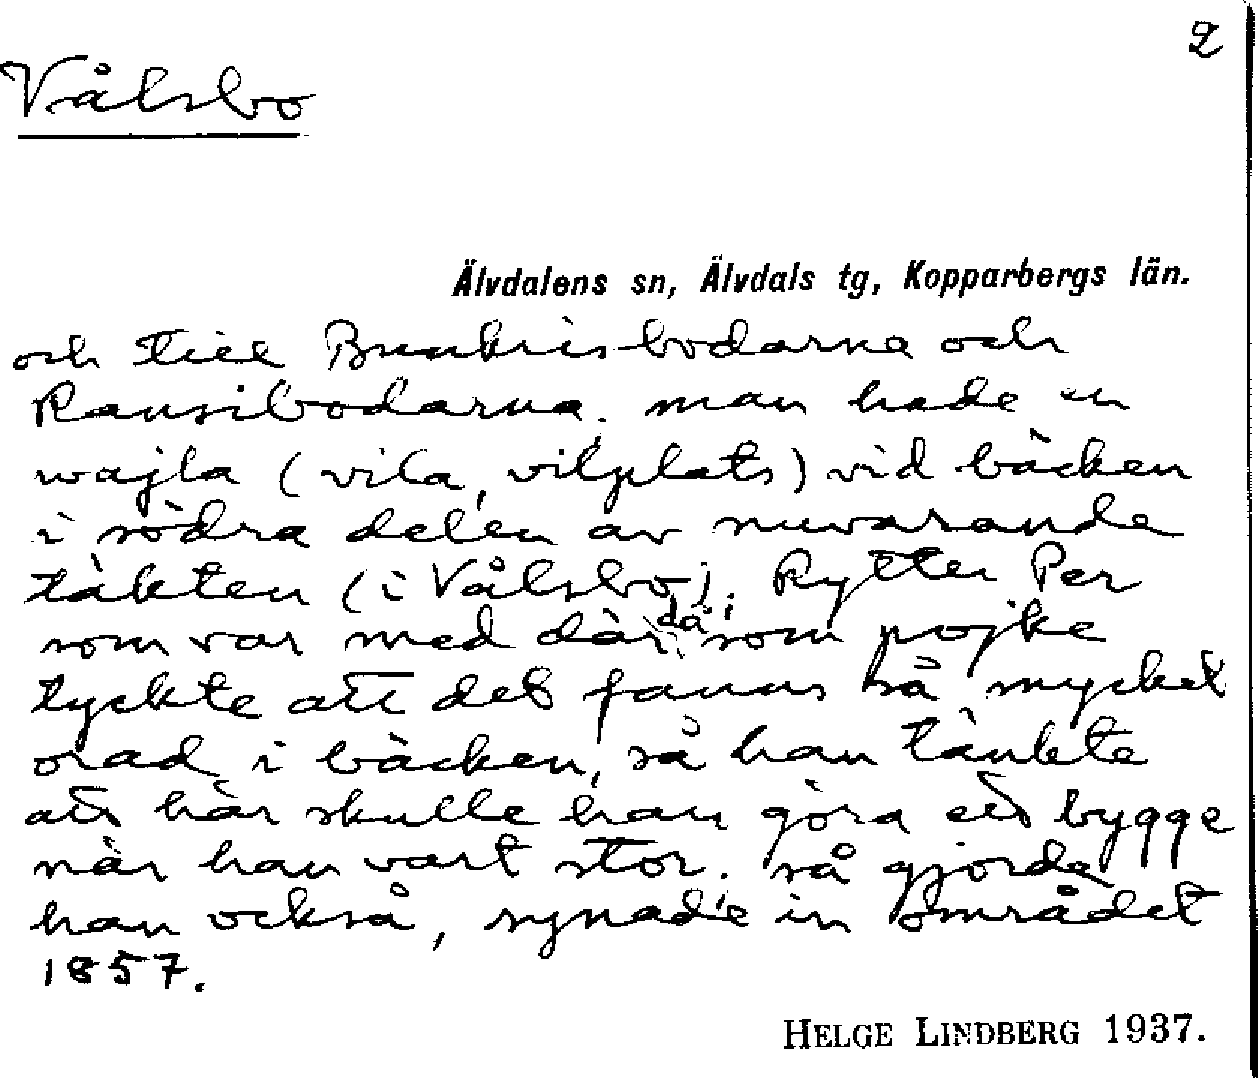 2
Vålsbo
Älvdalens sn, Älvdals tg, Kopparbergs län.
och till Bunkrisbodarna och
Ransibodarna. man hade en
wajla (vila, vilplats) vid bäcken
i södra delen av nuvarande
täkten (i Vålsbo). Rytter Per
som var med där då som pojke
tyckte att det fanns så mycket
orad i bäcken, så han tänkte
att här skulle han göra ett bygge
när han vart stor. så gjorde
han också, synade in området
1857.
HELGE LINDBERG 1937.